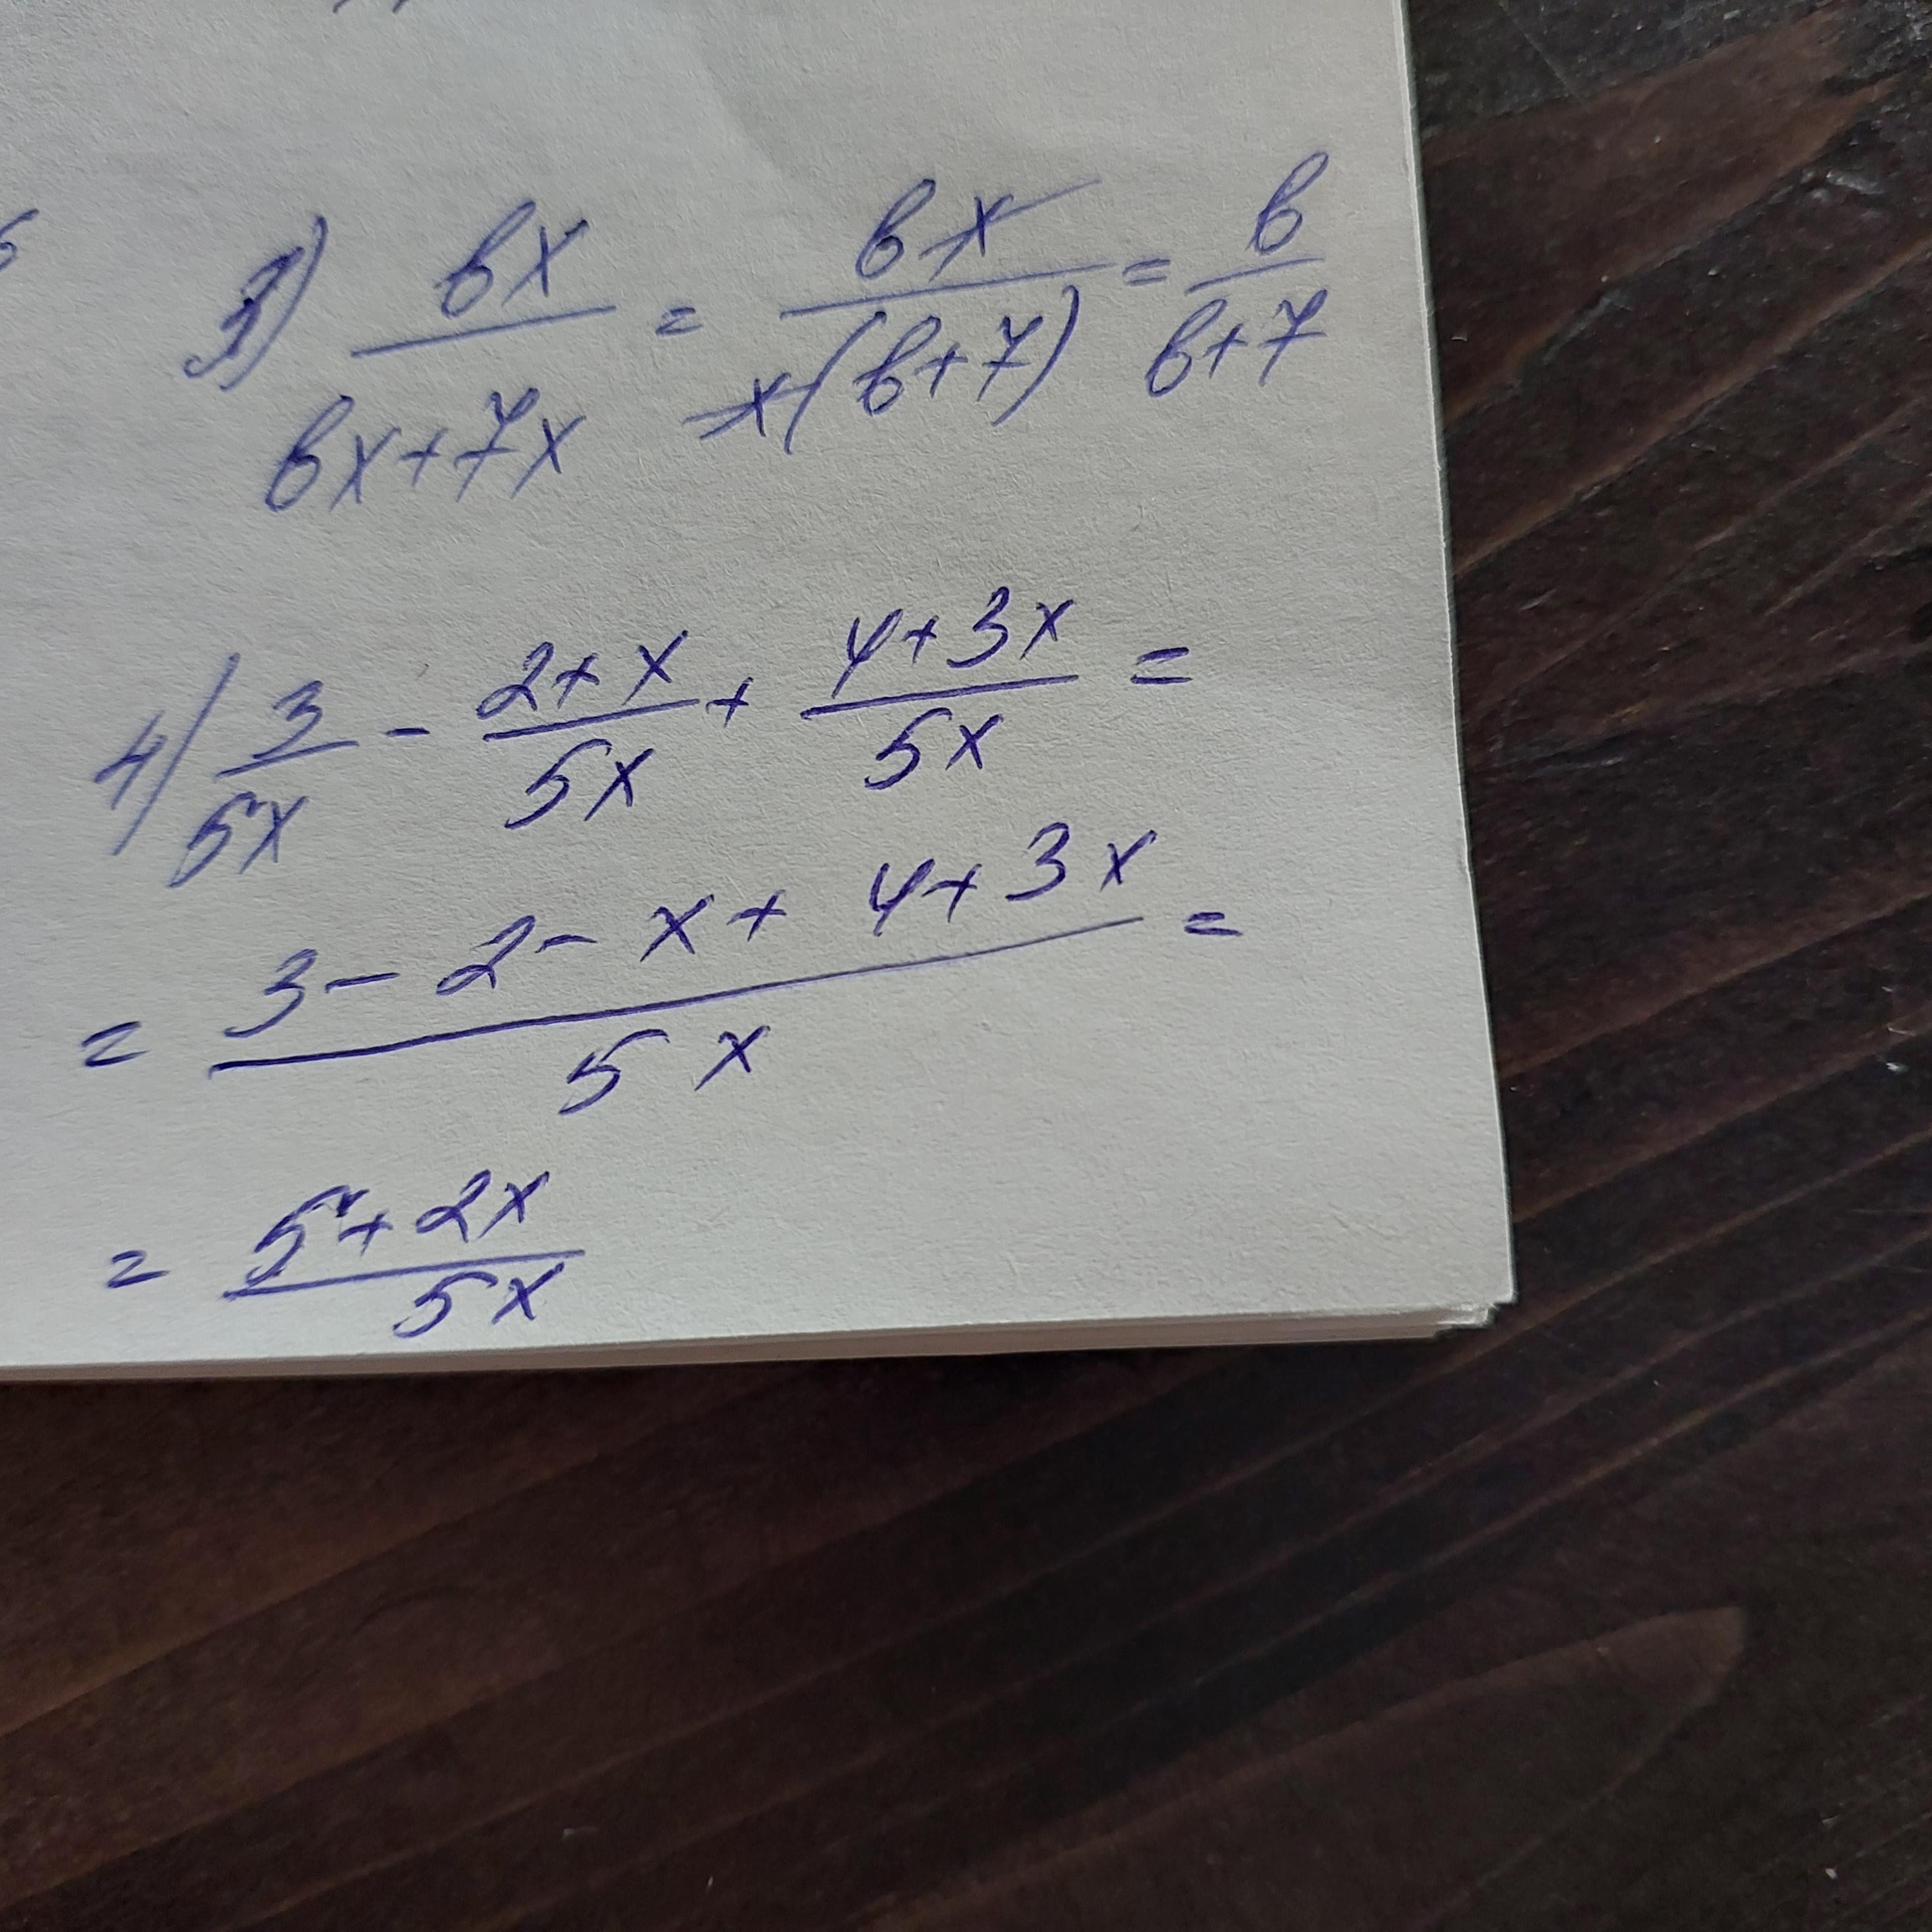 3) bx/(bx+7x) = bx/(x(b+7)) = b/(b+7)
4) 3/(5x) - (2+x)/(5x) + (4+3x)/(5x) =
= (3-2-x+4+3x)/(5x) =
= (5+2x)/(5x)